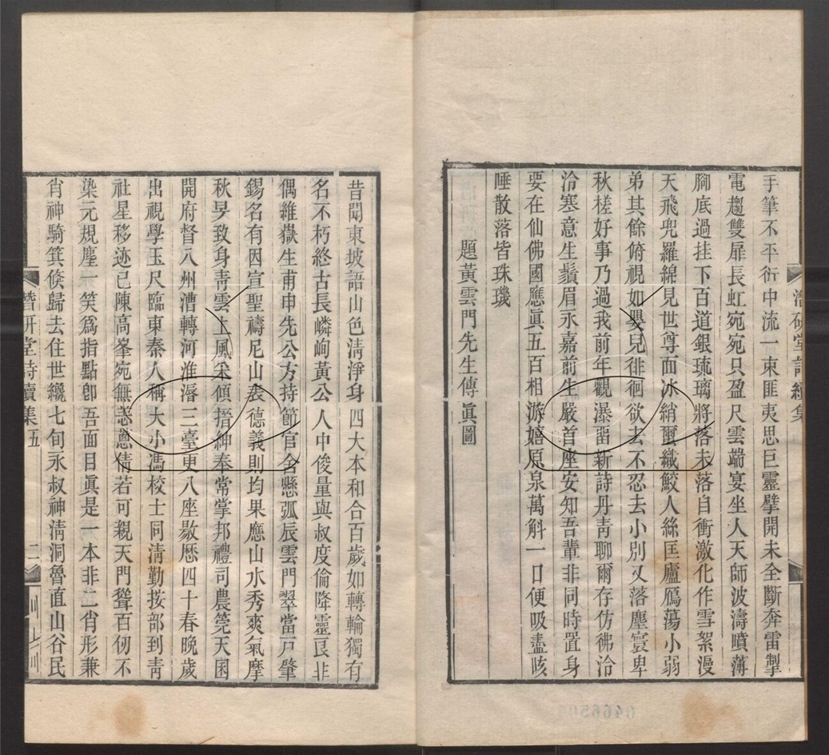 手筆不平衍中流一束匪夷思巨靈擘開未全斷奔雷掣
電趨雙扉長虹宛宛只盈尺雲端宴坐人天師波濤噴薄
腳底過挂下百道銀琉璃將落未落自衝激化作雪絮漫
天飛兜羅綿見世尊面冰綃蜑織鮫人絲匡廬鴈蕩小弱
弟其餘俯視如嬰兒徘徊欲去不忍去小別又落塵寰卑
秋槎好事乃過我前年觀瀑留新詩丹青聊爾存仿彿洽
洽寒意生鬚眉永嘉前生嚴首座安知吾輩非同時置身
要在仙佛國應眞五百相游嬉原泉萬斛一口便吸盡咳
唾散落皆珠璣
題黃雲門先生傳眞圖
昔聞東坡語山色清淨身四大本和合百歲如轉輪獨有
名不朽終古長嶙峋黃公人中俊量與叔度倫降靈良非
偶維嶽生甫申先公方持節官舍懸弧辰雲門翠當戸肇
錫名有因宣聖禱尼山表德義則均果應山水秀爽氣摩
秋旻致身青雲上風采傾搢紳奉常掌邦禮司農筦天囷
開府督八州漕轉河淮漘三臺更八座敭歷四十春晚歲
出視學玉尺臨東秦人稱大小馮校士同清勤按部到青
社星移迹已陳高峯宛無恙蔥倩若可親天門聳百仞不
染元規塵一笑爲指點卽吾面目眞是一本非二肖形兼
肖神騎箕倏歸去住世纔七旬永叔神清洞魯直山谷民
潛研堂詩續集五
二